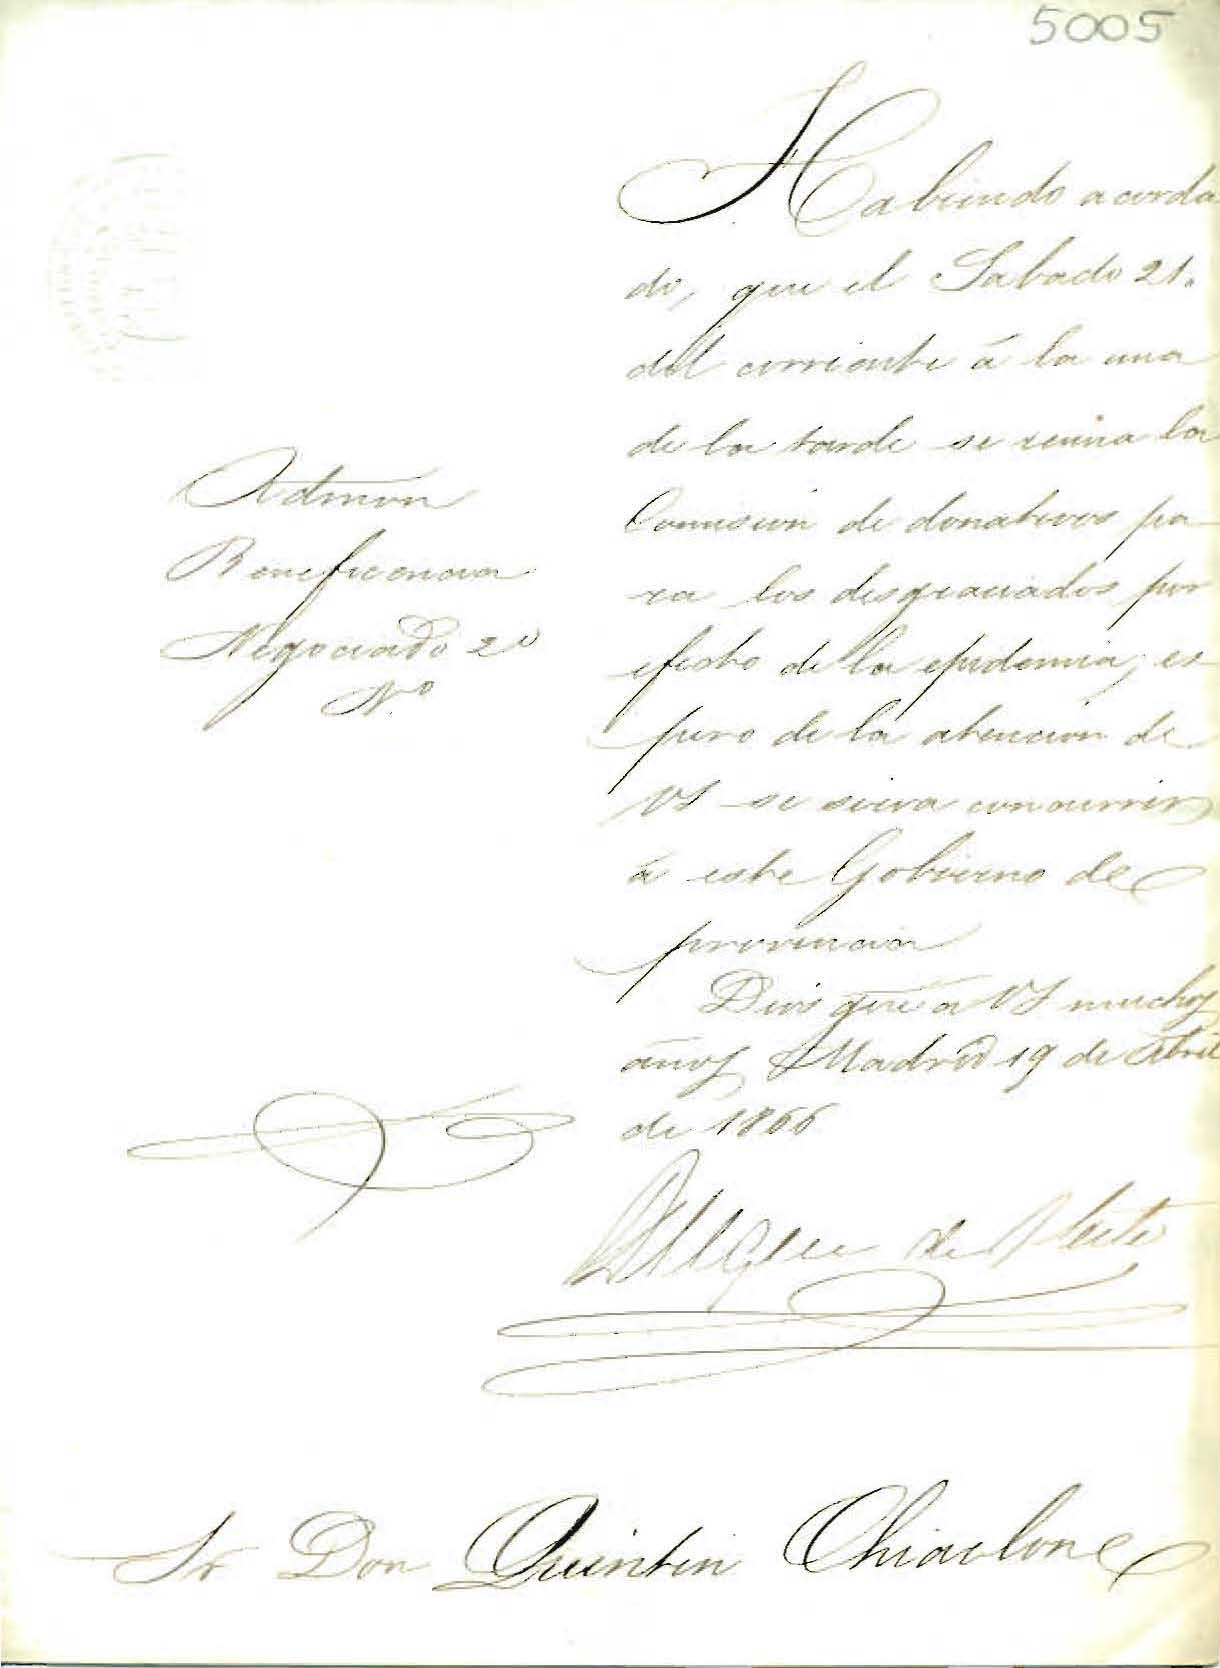 5005
Habiendo acorda
do, que el Sabado 21.
del corriente á la una
de la tarde se reuna la
Comision de donativos pa
ra los desgraciados por
efecto de la epidemia; es-
pero de la atencion de
VS se sirva concurrir
á este Gobierno de
provincia
Dios gue á VS muchos
años Madrid 19 de Abril
de 1866
Admon
Beneficencia
Negociado 2º
Nº
Duque de
Sr Don Quintin Chiarlone